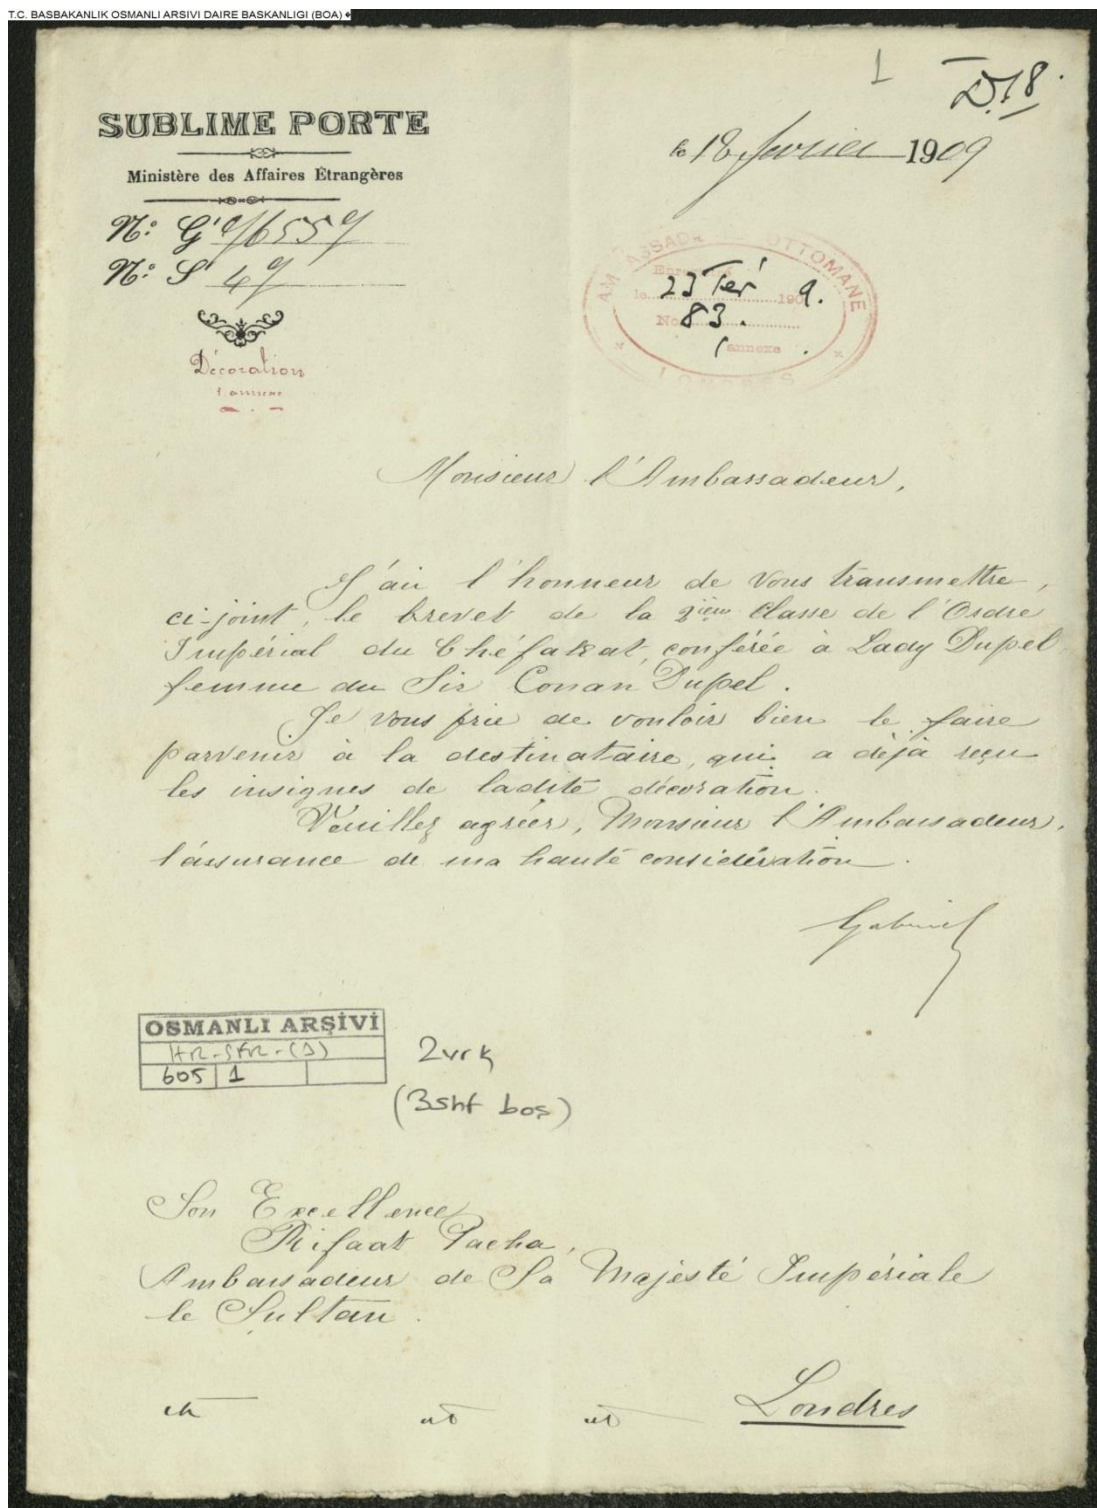 T.C. BASBAKANLIK OSMANLI ARSIVI DAIRE BASKANLIGI (BOA)
1
D.18.
SUBLIME PORTE
Ministère des Affaires Étrangères
le 18 février 1909
No: Gl 96559
No: Sl 49
AMBASSADE OTTOMANE
le 23 Fér 1909.
No 83.
1 annexe.
LONDRES
Décoration
1 annexe
Monsieur l'Ambassadeur,
J'ai l'honneur de Vous transmettre,
ci-joint, le brevet de la 2ième classe de l'Ordre
Impérial du Chéfakat, conférée à Lady Dupel
femme du Sir Conan Dupel.
Je vous prie de vouloir bien le faire
parvenir à la destinataire, qui a déjà reçu
les insignes de ladite décoration.
Veuillez agréer, Monsieur l'Ambassadeur,
l'assurance de ma haute considération.
Gabriel
OSMANLI ARŞİVİ
HR-SFR-(3)
605 | 1
2vrk
(3shf boş)
Son Excellence
Rifaat Pacha,
Ambassadeur de Sa Majesté Impériale
le Sultan.
etc etc etc
Londres